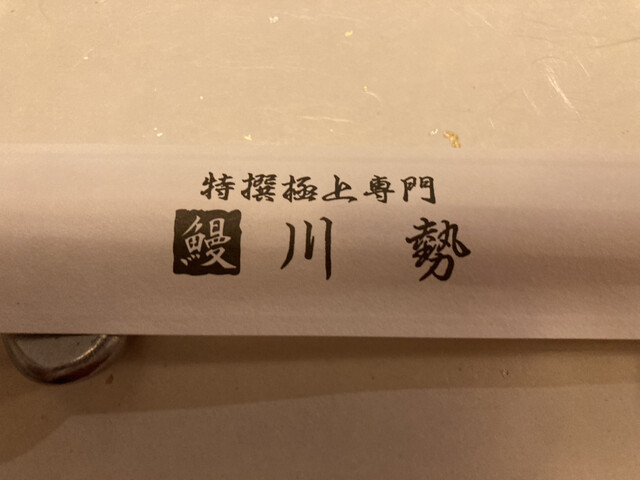 特撰極上専門
鰻 川勢